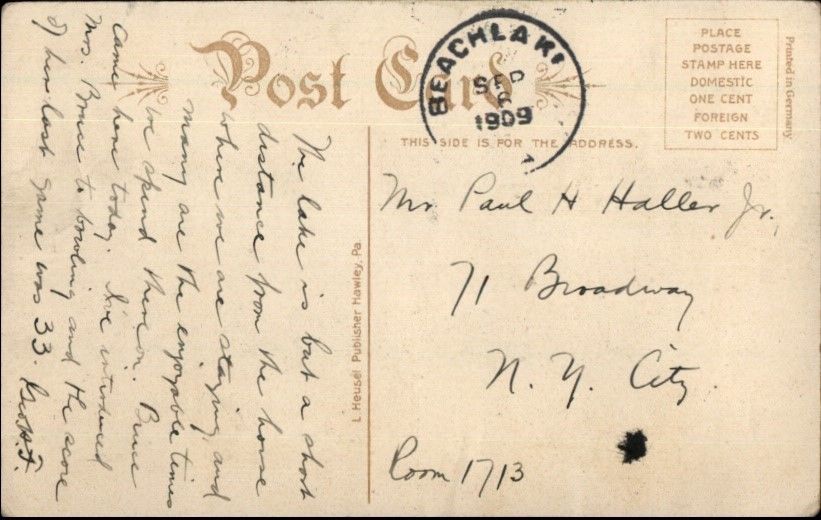 Post Card
BEACHLAKE
SEP
6
1909
PLACE
POSTAGE
STAMP HERE
DOMESTIC
ONE CENT
FOREIGN
TWO CENTS
Printed in Germany
THIS SIDE IS FOR THE ADDRESS.
The lake is but a short
distance from the house
where we are staying, and
many are the enjoyable times
we spend thereon. Bruce
came here today. I've introduced
Mrs. Bruce to bowling and the score
of her last game was 33.
L Heusel Publisher Hawley, Pa
Mr Paul H Haller Jr.,
71 Broadway
N. Y. City.
Room 1713